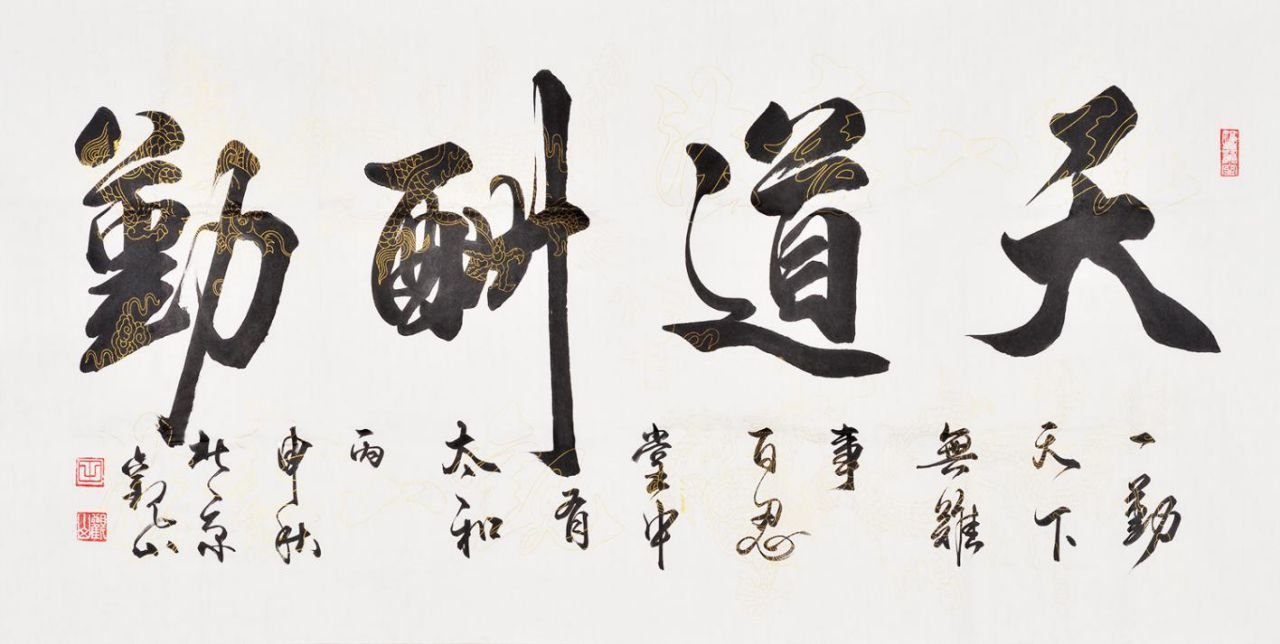 天道酬勤
一勤
天下
無難
事
百忍
堂中
有
太和
丙
申秋
北京
觀山
觀山